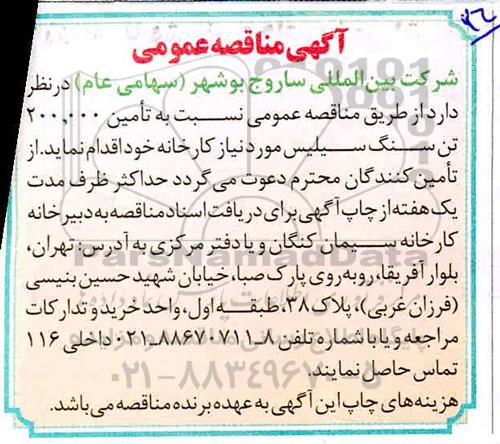 آگهی مناقصه عمومی
شرکت بین المللی ساروج بوشهر (سهامی عام) در نظر
دارد از طریق مناقصه عمومی نسبت به تأمین ۲۰۰,۰۰۰
تن سنگ سیلیس مورد نیاز کارخانه خود اقدام نماید. از
تأمین کنندگان محترم دعوت می گردد حداکثر ظرف مدت
یک هفته از چاپ آگهی برای دریافت اسناد مناقصه به دبیرخانه
کارخانه سیمان کنگان و یا دفتر مرکزی به آدرس: تهران،
بلوار آفریقا، روبه روی پارک صبا، خیابان شهید حسین بنیسی
(فرزان غربی)، پلاک ۳۸، طبقه اول، واحد خرید و تدارکات
مراجعه و یا با شماره تلفن ۸-۸۸۶۷۰۷۱۱-۰۲۱ داخلی ۱۱۶
تماس حاصل نمایند.
هزینه های چاپ این آگهی به عهده برنده مناقصه می باشد.
ParsNamadData
۰۲۱-۸۸۳۴۹۶۷۰-۵